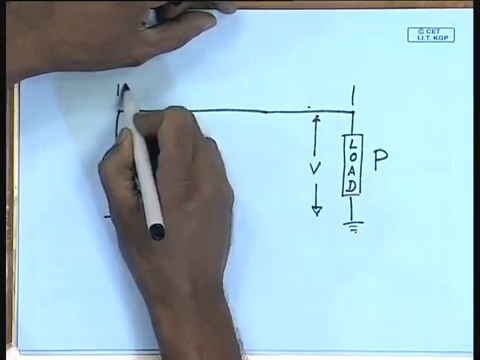 © CET
I.I.T. KGP
V
LOAD
P